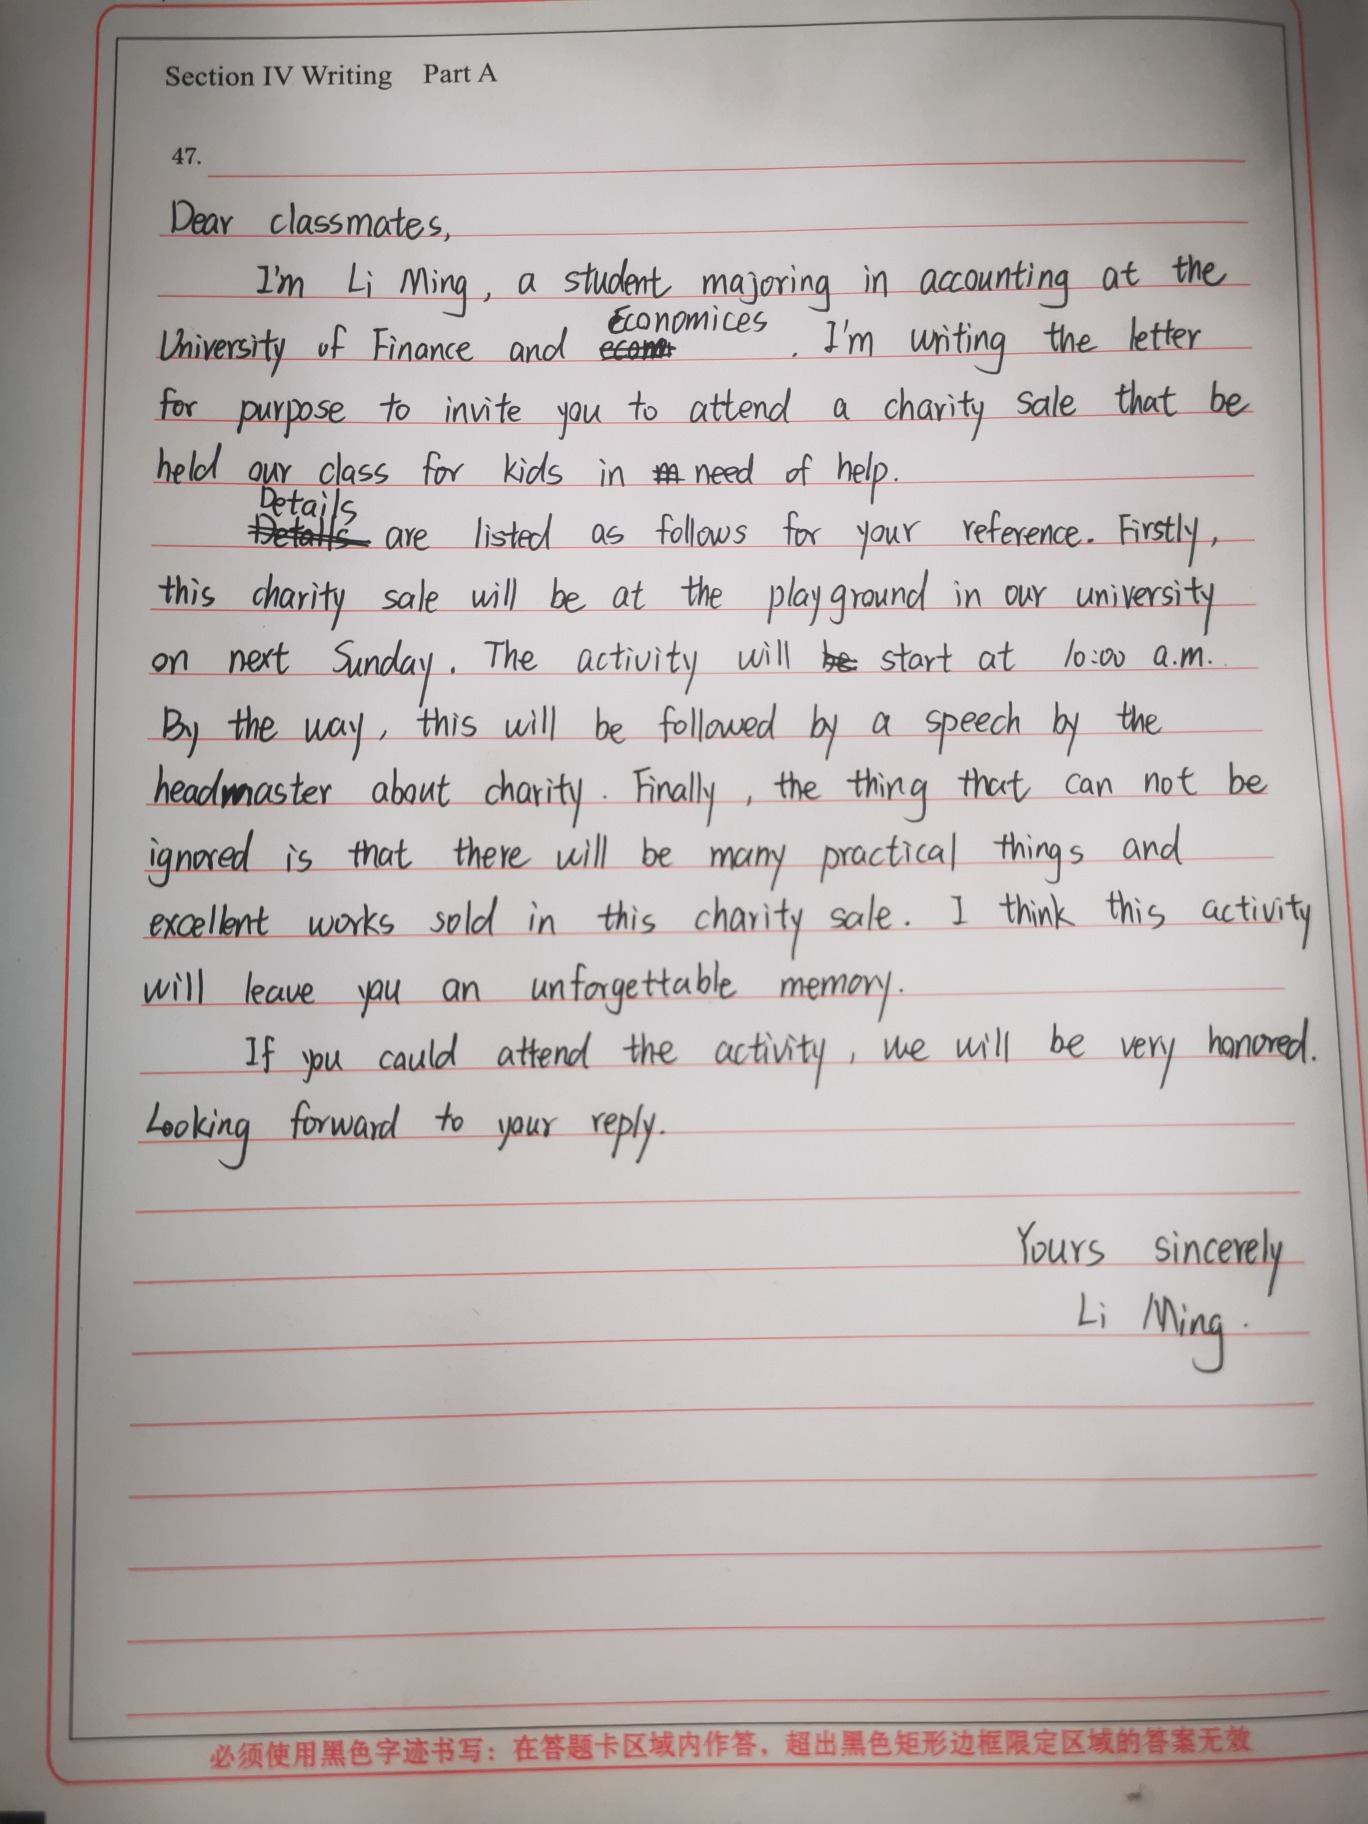 Section IV Writing Part A
47.
Dear classmates,
I'm Li Ming, a student majoring in accounting at the
University of Finance and Economices. I'm writing the letter
for purpose to invite you to attend a charity sale that be
held our class for kids in need of help.
Details are listed as follows for your reference. Firstly,
this charity sale will be at the playground in our university
on next Sunday. The activity will start at 10:00 a.m.
By the way, this will be followed by a speech by the
headmaster about charity. Finally, the thing that can not be
ignored is that there will be many practical things and
excellent works sold in this charity sale. I think this activity
will leave you an unforgettable memory.
If you could attend the activity, we will be very honored.
Looking forward to your reply.
Yours sincerely
Li Ming.
必须使用黑色字迹书写：在答题卡区域内作答，超出黑色矩形边框限定区域的答案无效